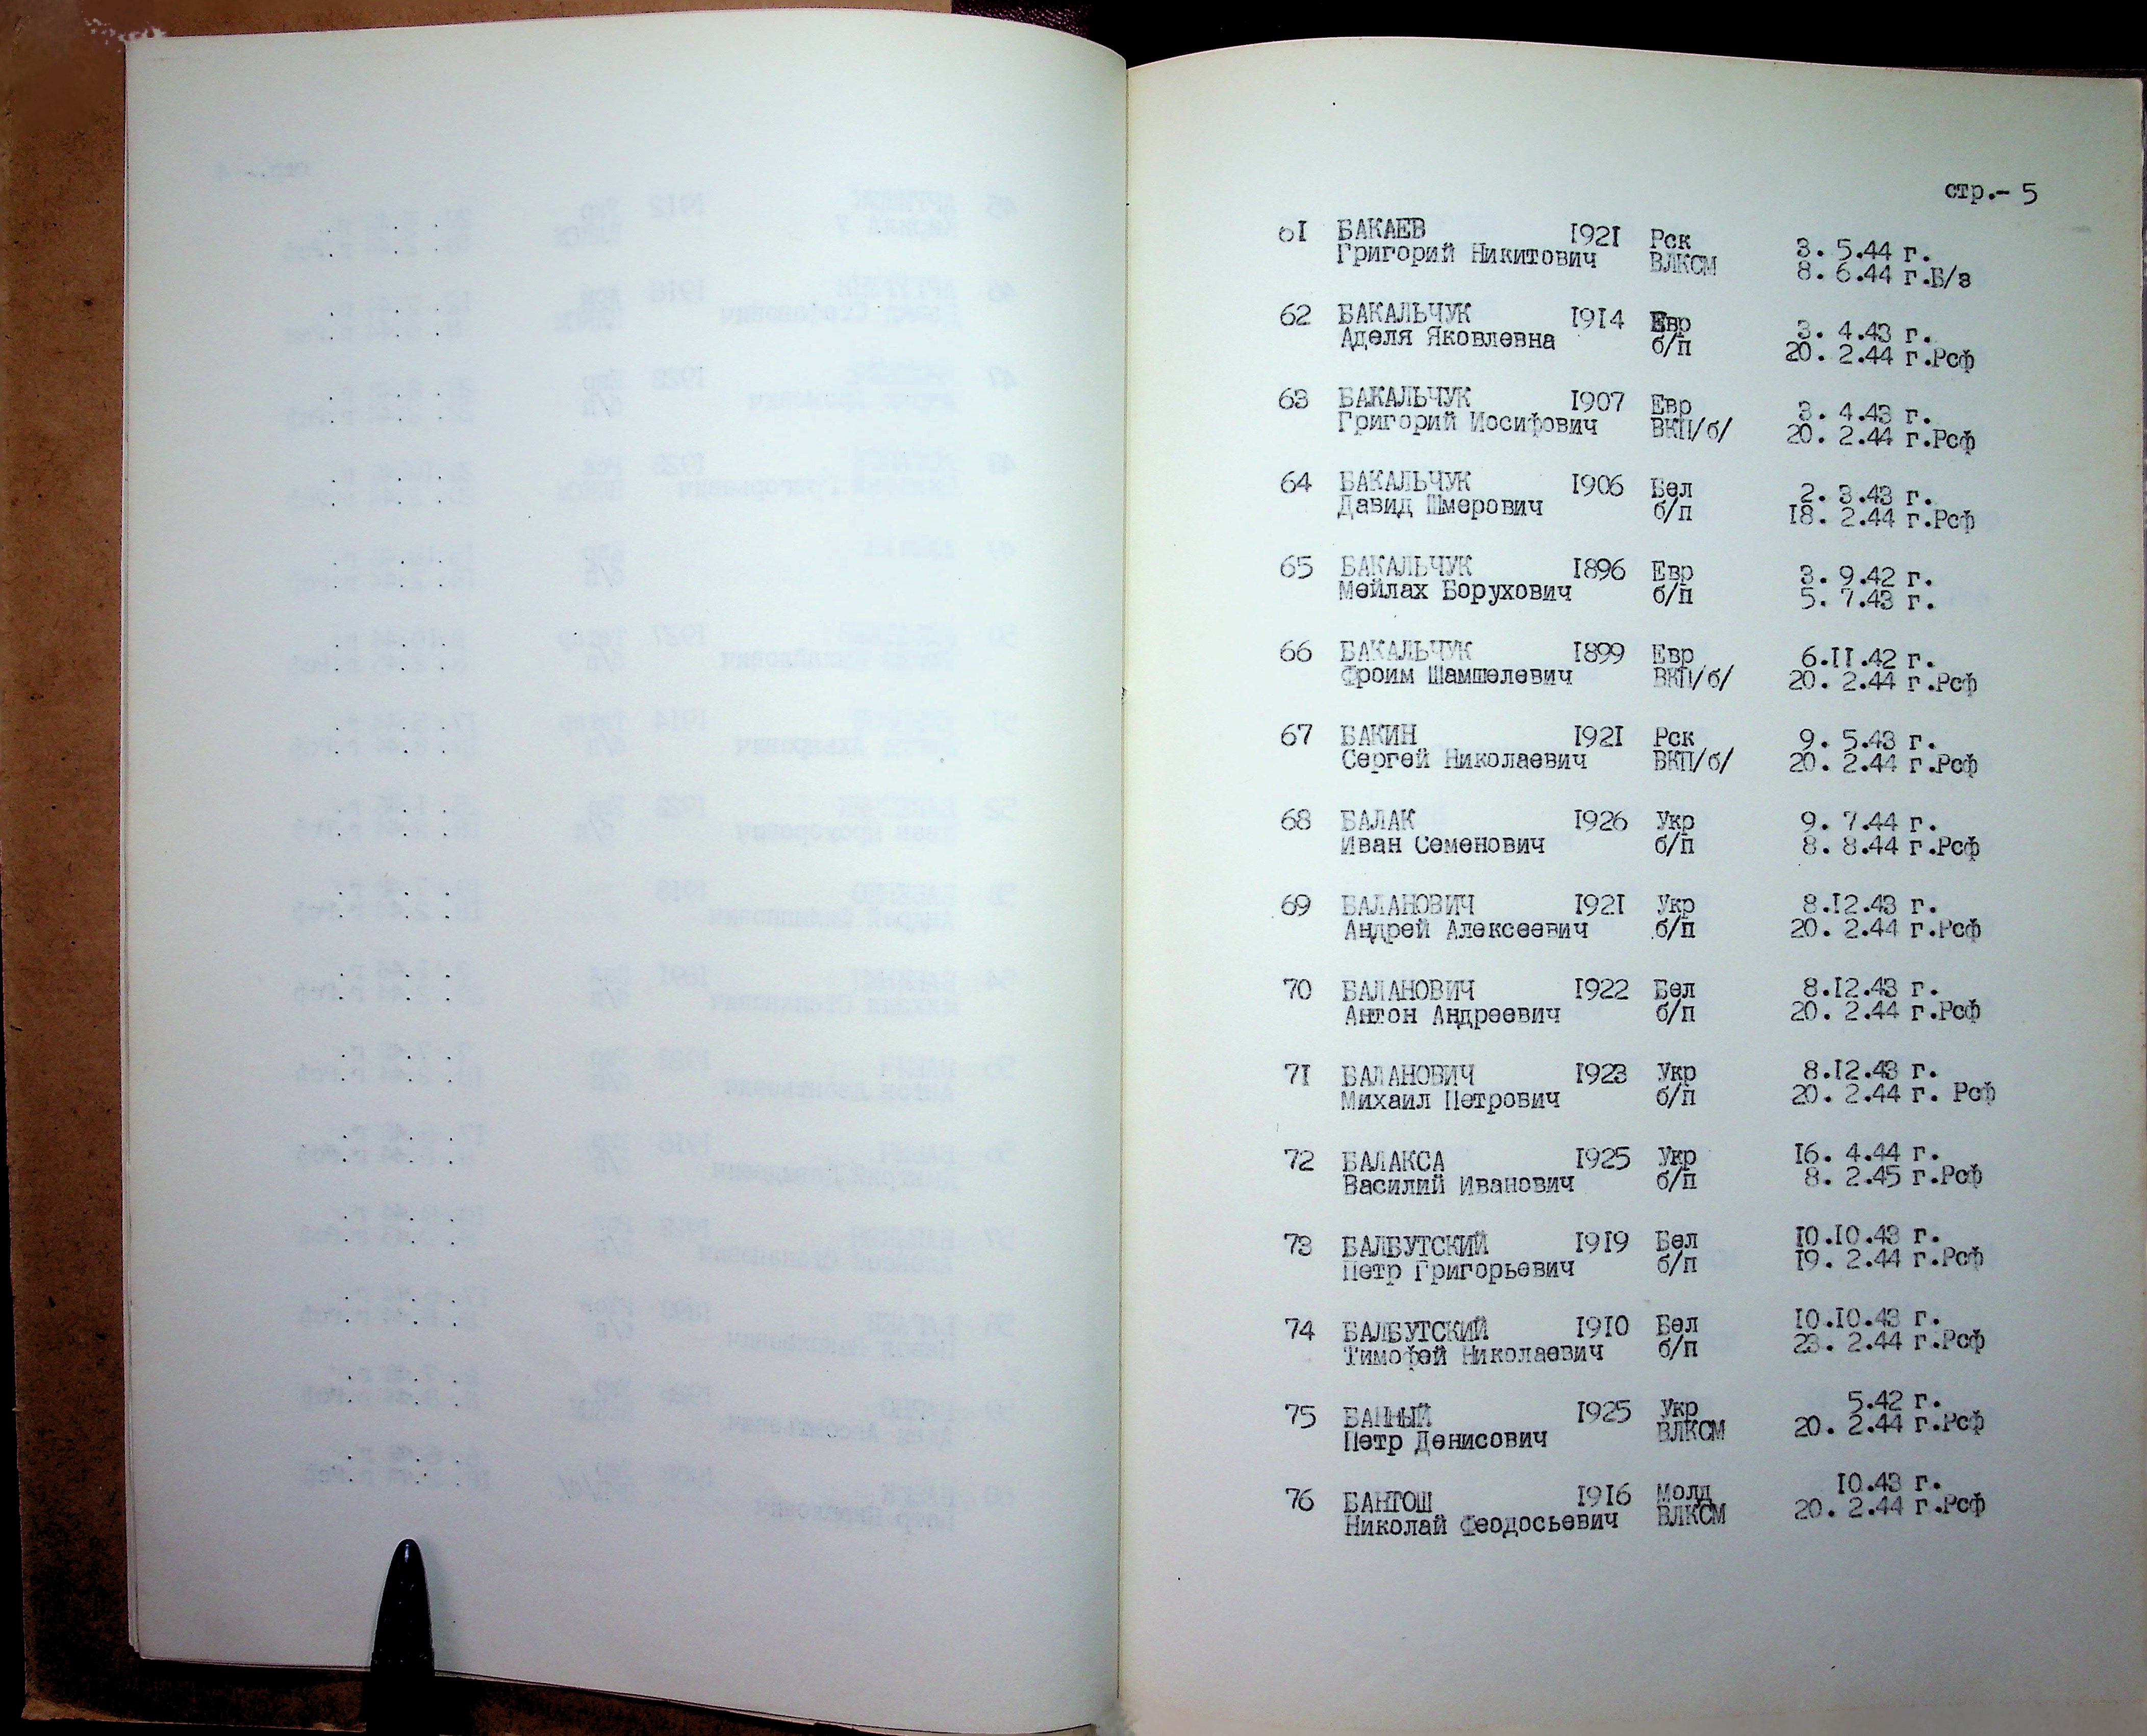 стр.- 5
61 БАКАЕВ 1921 Рск 3. 5.44 г.
Григорий Никитович ВЛКСМ 8. 6.44 г.Б/з
62 БАКАЛЬЧУК 1914 Евр 3. 4.43 г.
Аделя Яковлевна б/п 20. 2.44 г.Рсф
63 БАКАЛЬЧУК 1907 Евр 3. 4.43 г.
Григорий Иосифович ВКП/б/ 20. 2.44 г.Рсф
64 БАКАЛЬЧУК 1906 Бел 2. 3.43 г.
Давид Шмерович б/п 18. 2.44 г.Рсф
65 БАКАЛЬЧУК 1896 Евр 3. 9.42 г.
Мейлах Борухович б/п 5. 7.43 г.
66 БАКАЛЬЧУК 1899 Евр 6.11.42 г.
Фроим Шампшелевич ВКП/б/ 20. 2.44 г.Рсф
67 БАКИН 1921 Рск 9. 5.43 г.
Сергей Николаевич ВКП/б/ 20. 2.44 г.Рсф
68 БАЛАК 1926 Укр 9. 7.44 г.
Иван Семенович б/п 8. 8.44 г.Рсф
69 БАЛАНОВИЧ 1921 Укр 8.12.43 г.
Андрей Алексеевич б/п 20. 2.44 г.Рсф
70 БАЛАНОВИЧ 1922 Бел 8.12.43 г.
Антон Андреевич б/п 20. 2.44 г.Рсф
71 БАЛАНОВИЧ 1923 Укр 8.12.43 г.
Михаил Петрович б/п 20. 2.44 г. Рсф
72 БАЛАКСА 1925 Укр 16. 4.44 г.
Василий Иванович б/п 8. 2.45 г.Рсф
73 БАЛБУТСКИЙ 1919 Бел 10.10.43 г.
Петр Григорьевич б/п 19. 2.44 г.Рсф
74 БАЛБУТСКИЙ 1910 Бел 10.10.43 г.
Тимофей Николаевич б/п 23. 2.44 г.Рсф
75 БАННЫЙ 1925 Укр 5.42 г.
Петр Денисович ВЛКСМ 20. 2.44 г.Рсф
76 БАНТОШ 1916 Молд 10.43 г.
Николай Феодосьевич ВЛКСМ 20. 2.44 г.Рсф